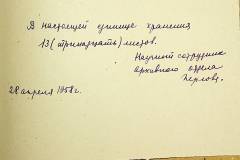 В настоящей единице хранения
13 (тринадцать) листов.
Научный сотрудник
архивного отдела
28 апреля 1958 г.